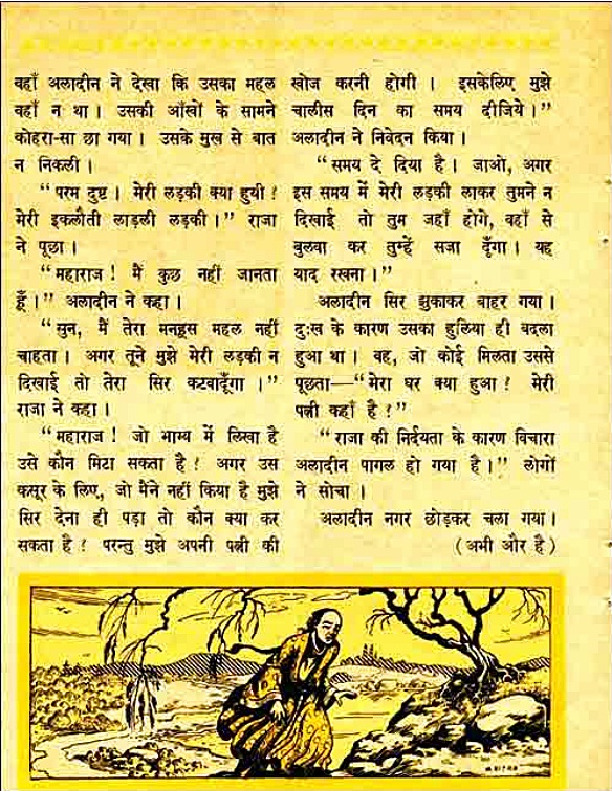 वहाँ अलादीन ने देखा कि उसका महल
वहाँ न था। उसकी आँखों के सामने
कोहरा-सा छा गया। उसके मुख से बात
न निकली।
“परम दुष्ट। मेरी लड़की क्या हुयी?
मेरी इकलौती लाड़ली लड़की।” राजा
ने पूछा।
“महाराज! मैं कुछ नहीं जानता
हूँ।” अलादीन ने कहा।
“सुन, मैं तेरा मनहूस महल नहीं
चाहता। अगर तूने मुझे मेरी लड़की न
दिखाई तो तेरा सिर कटवादूँगा।”
राजा ने कहा।
“महाराज! जो भाग्य में लिखा है
उसे कौन मिटा सकता है? अगर उस
कसूर के लिए, जो मैंने नहीं किया है मुझे
सिर देना ही पड़ा तो कौन क्या कर
सकता है? परन्तु मुझे अपनी पत्नी की
खोज करनी होगी। इसकेलिए मुझे
चालीस दिन का समय दीजिये।”
अलादीन ने निवेदन किया।
“समय दे दिया है। जाओ, अगर
इस समय में मेरी लड़की लाकर तुमने न
दिखाई तो तुम जहाँ होगे, वहाँ से
बुलवा कर तुम्हें सजा दूँगा। यह
याद रखना।”
अलादीन सिर झुकाकर बाहर गया।
दुःख के कारण उसका हुलिया ही बदला
हुआ था। वह, जो कोई मिलता उससे
पूछता—“मेरा घर क्या हुआ? मेरी
पत्नी कहाँ है?”
“राजा की निर्दयता के कारण विचारा
अलादीन पागल हो गया है।” लोगों
ने सोचा।
अलादीन नगर छोड़कर चला गया।
(अभी और है)